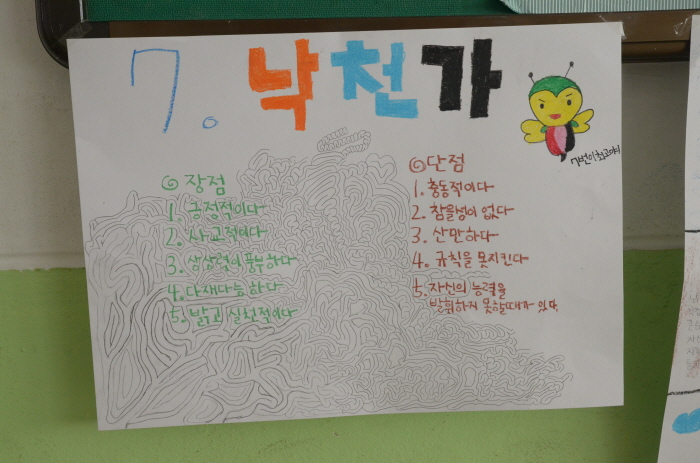 7. 낙천가
7번이 최고야!
◎ 장점
1. 긍정적이다
2. 사교적이다
3. 상상력이 풍부하다
4. 다재다능하다
5. 밝고 실천적이다
◎ 단점
1. 충동적이다
2. 참을성이 없다
3. 산만하다
4. 규칙을 못지킨다
5. 자신의 능력을
발휘하지 못할때가 있다.